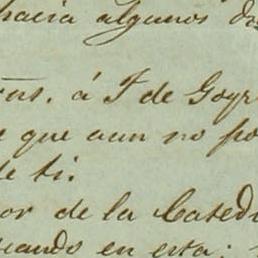 hacia algunos do
á J de Goyr
que aun no po
de ti.
or de la Catedr
uando en esta;